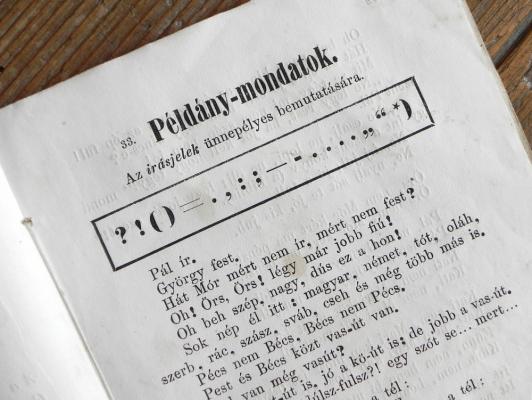 33. Példány-mondatok.
Az irásjelek ünnepélyes bemutatására.
? ! ( ) = . , : ; — - . . . . „ “ *)
Pál ír.
György fest.
Hát Mór mért nem ir, mért nem fest?
Oh! Örs, Örs! légy már jobb fiú!
Oh beh szép, nagy, dús ez a hon!
Sok nép él itt: magyar, német, tót, oláh,
szerb, rác, szász, sváb, cseh és még több más is.
Pécs nem Bécs. Bécs nem Pécs.
Pest és Bécs közt vas-út van.
van még vasút?
út is, jó a kö-út is; de jobb a vas-út.
fulsz?! egy szót se... mert...
a tél:
a tél: